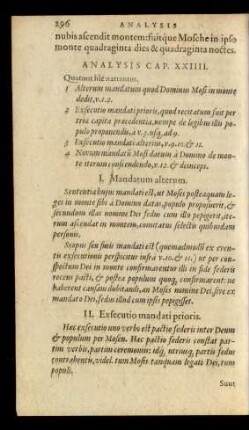 296 ANALYSIS
nubis ascendit montem: fuitque Mosche in ipso
monte quadraginta dies & quadraginta noctes.
ANALYSIS CAP. XXIIII.
Quatuor hîc narrantur.
1 Alterum mandatum quod Dominus Mosi in monte
dedit, v.1.2.
2 Exsecutio mandati prioris, quod recitatum fuit per
tria capita præcedentia, nempe de legibus illi po-
pulo proponendis, à v.3. usq, ad 9.
3 Exsecutio mandati alterius, v.9.10. & 11.
4 Novum mandatũ Mosi datum à Domino de mon-
te iterum conscendendo, v.12. & deinceps.
I. Mandatum alterum.
Sententia hujus mandati est, ut Moses postea quam le-
ges in monte sibi à Domino datas, populo proposuerit, &
secundum illas nomine Dei fœdus cum illo pepigerit, ite-
rum ascendat in montem, comitatus selectis quibusdam
personis.
Scopus seu finis mandati est (quemadmodũ ex even-
tis exsecutionis perspicitur infrà v.10. & 11.) ut per con-
spectum Dei in monte confirmarentur illi in fide fœderis
recens pacti, & postea populum quoq, confirmarent: ne
haberent causam dubitandi, an Moses nomine Dei, sive ex
mandato Dei, fœdus illud cum ipsis pepigisset.
II. Exsecutio mandati prioris.
Hæc exsecutio uno verbo est pactio fœderis inter Deum
& populum per Mosen. Hæc pactio fœderis constat par-
tim verbis, partim ceremoniis: idq, utriusq, partis fœdus
contrahentis, videl. tum Mosis tanquam legati Dei, tum
populi.
Sunt